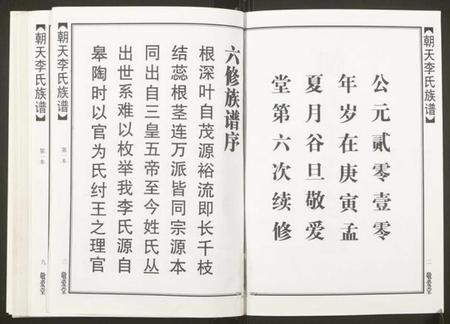 【朝天李氏族谱】
二
敬爱堂
公元貳零壹零
年岁在庚寅孟
夏月谷旦敬爱
堂第六次续修
六修族谱序
根深叶自茂源裕流即长千枝
结蕊根茎连万派皆同宗源本
同出自三皇五帝至今姓氏丛
出世系难以枚举我李氏源自
皋陶时以官为氏纣王之理官
【朝天李氏族谱】
第一本
敬爱堂
【朝天李氏族谱】
第一本
九
敬爱堂